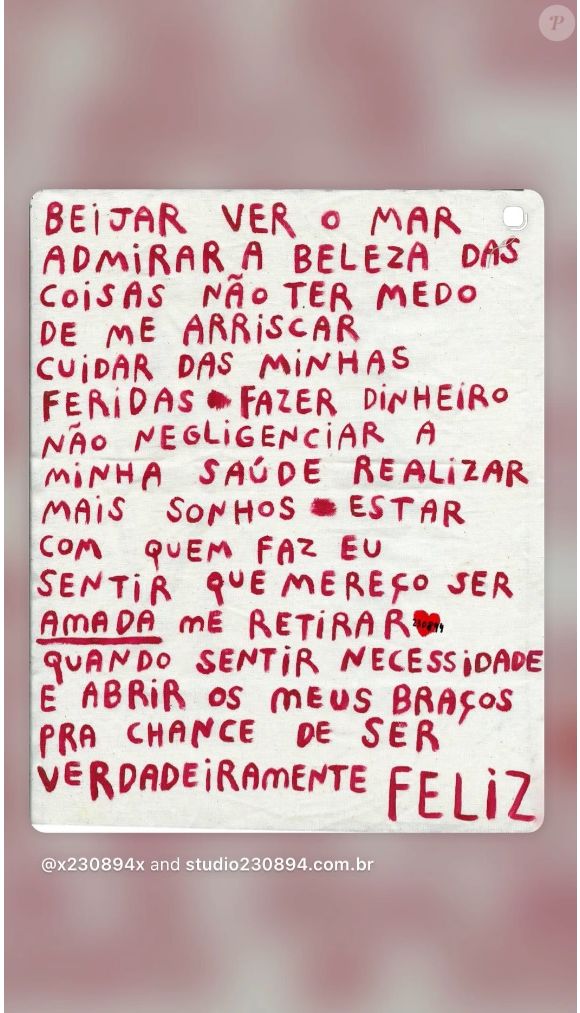 P
BEiJAR VER O MAR
ADMiRAR A BELEZA DAS
COiSAS NÃO TER MEDO
DE ME ARRiSCAR
CUiDAR DAS MiNHAS
FERiDAS FAZER DiNHEiRO
NÃO NEGLiGENCiAR A
MiNHA SAÚDE REALiZAR
MAiS SONHOS ESTAR
COM QUEM FAZ EU
SENTiR QUE MEREÇO SER
AMADA ME RETiRAR 230894
QUANDO SENTiR NECESSiDADE
E ABRiR OS MEUS BRAÇOS
PRA CHANCE DE SER
VERDADEiRAMENTE FELiZ
@x230894x and studio230894.com.br